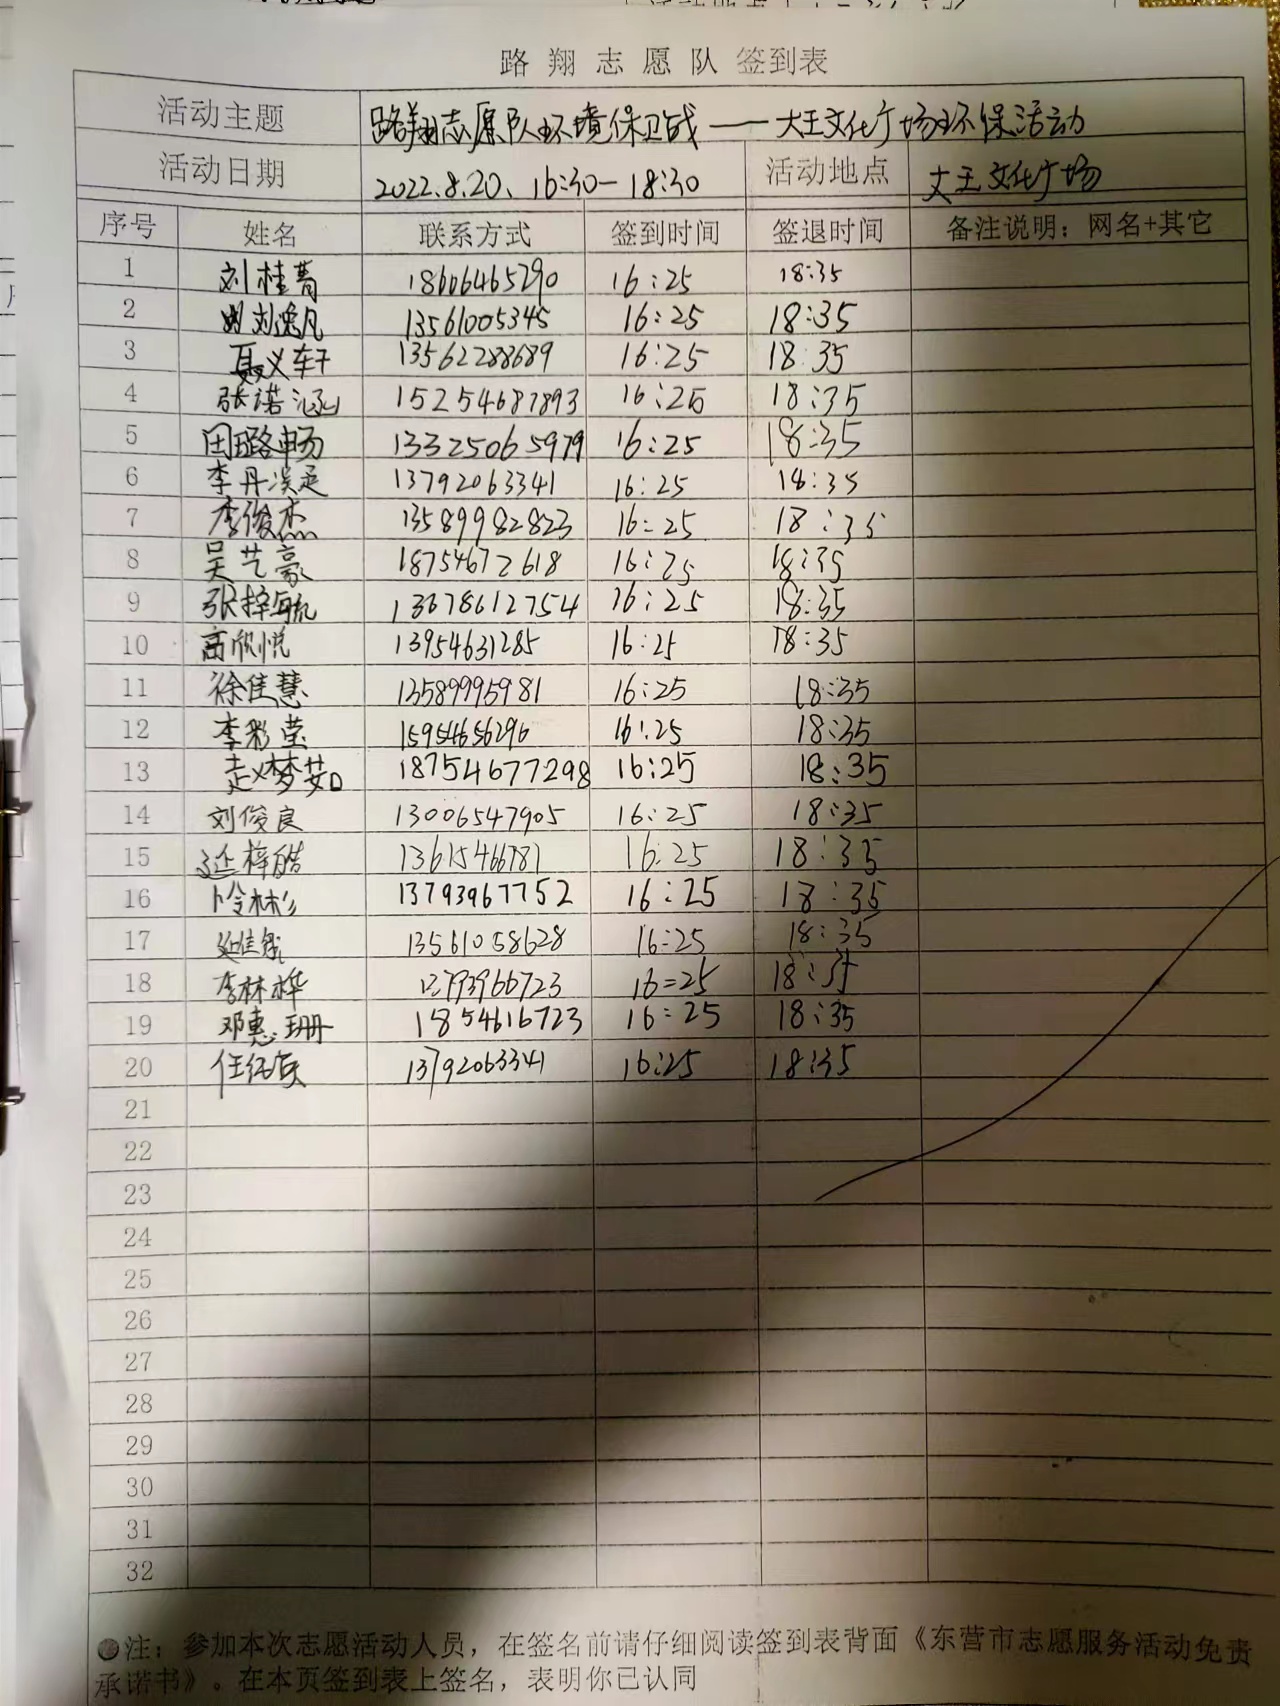 路翔志愿队 签到表
活动主题 路翔志愿队环境保卫战——大王文化广场环保活动
活动日期 2022.8.20、16:30-18:30 活动地点 大王文化广场
序号 姓名 联系方式 签到时间 签退时间 备注说明：网名+其它
1 刘桂菁 18606465290 16:25 18:35
2 刘逸凡 13561005345 16:25 18:35
3 聂义轩 13562288689 16:25 18:35
4 张诺涵 15254687893 16:25 18:35
5 田璐畅 13325065979 16:25 18:35
6 李丹 13792063341 16:25 18:35
7 李俊杰 13589982823 16:25 18:35
8 吴艺豪 18754672618 16:25 18:35
9 张梓毓 13678612754 16:25 18:35
10 高欣悦 13954631285 16:25 18:35
11 徐佳慧 13589995981 16:25 18:35
12 李彩莹 15954656296 16:25 18:35
13 赵梦茹 18754677298 16:25 18:35
14 刘俊良 13006547905 16:25 18:35
15 延梓皓 13615466781 16:25 18:35
16 13793967752 16:25 18:35
17 延佳 13561058628 16:25 18:35
18 李林桦 16=25 18:35
19 邓惠珊 1854616723 16:25 18:35
20 任 13792063341 16:25 18:35
21
22
23
24
25
26
27
28
29
30
31
32
注：参加本次志愿活动人员，在签名前请仔细阅读签到表背面《东营市志愿服务活动免责
承诺书》。在本页签到表上签名，表明你已认同